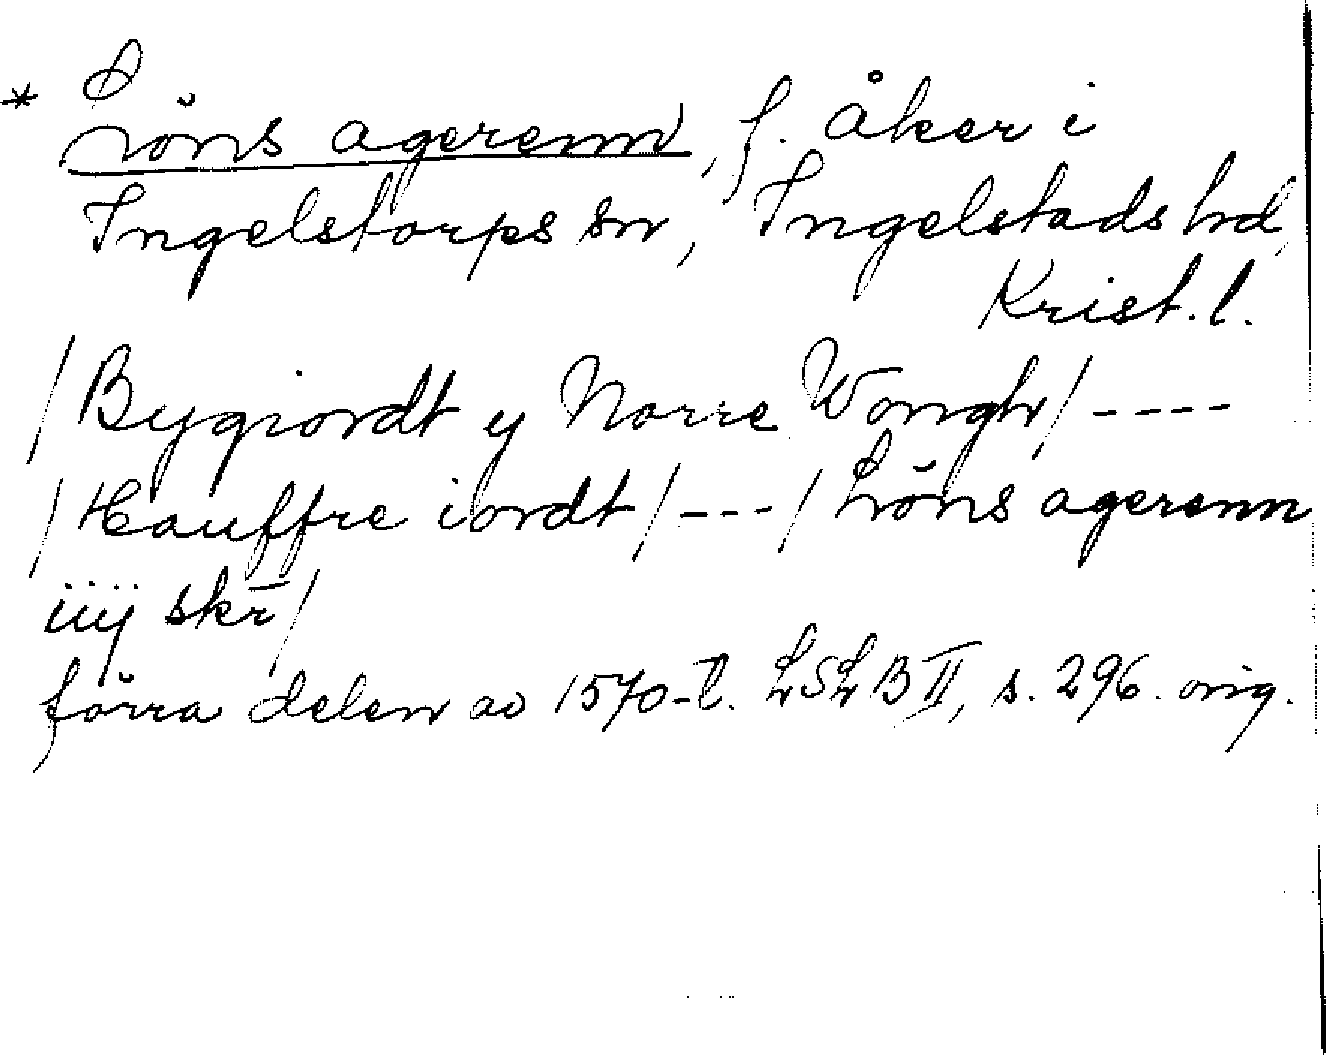 * Löns agerenn, f. åker i
Ingelstorps sn, Ingelstads hd,
Krist. l.
/Bygiordt y Norre Wongh/ ----
/Hauffre iordt/ --- / Löns agerenn
iiij skr̄/
förra delen av 1570-t. LSLB II, s. 296. orig.